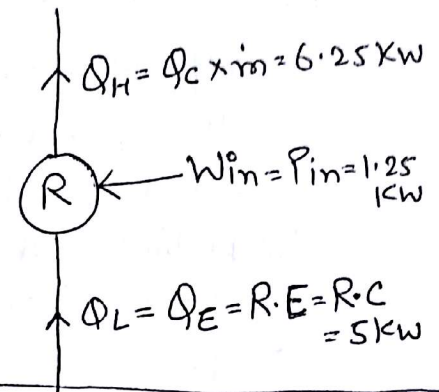 Q_H = q_c × ṁ = 6.25 KW
R
Win = Pin = 1.25
KW
Q_L = Q_E = R.E = R.C
= 5KW